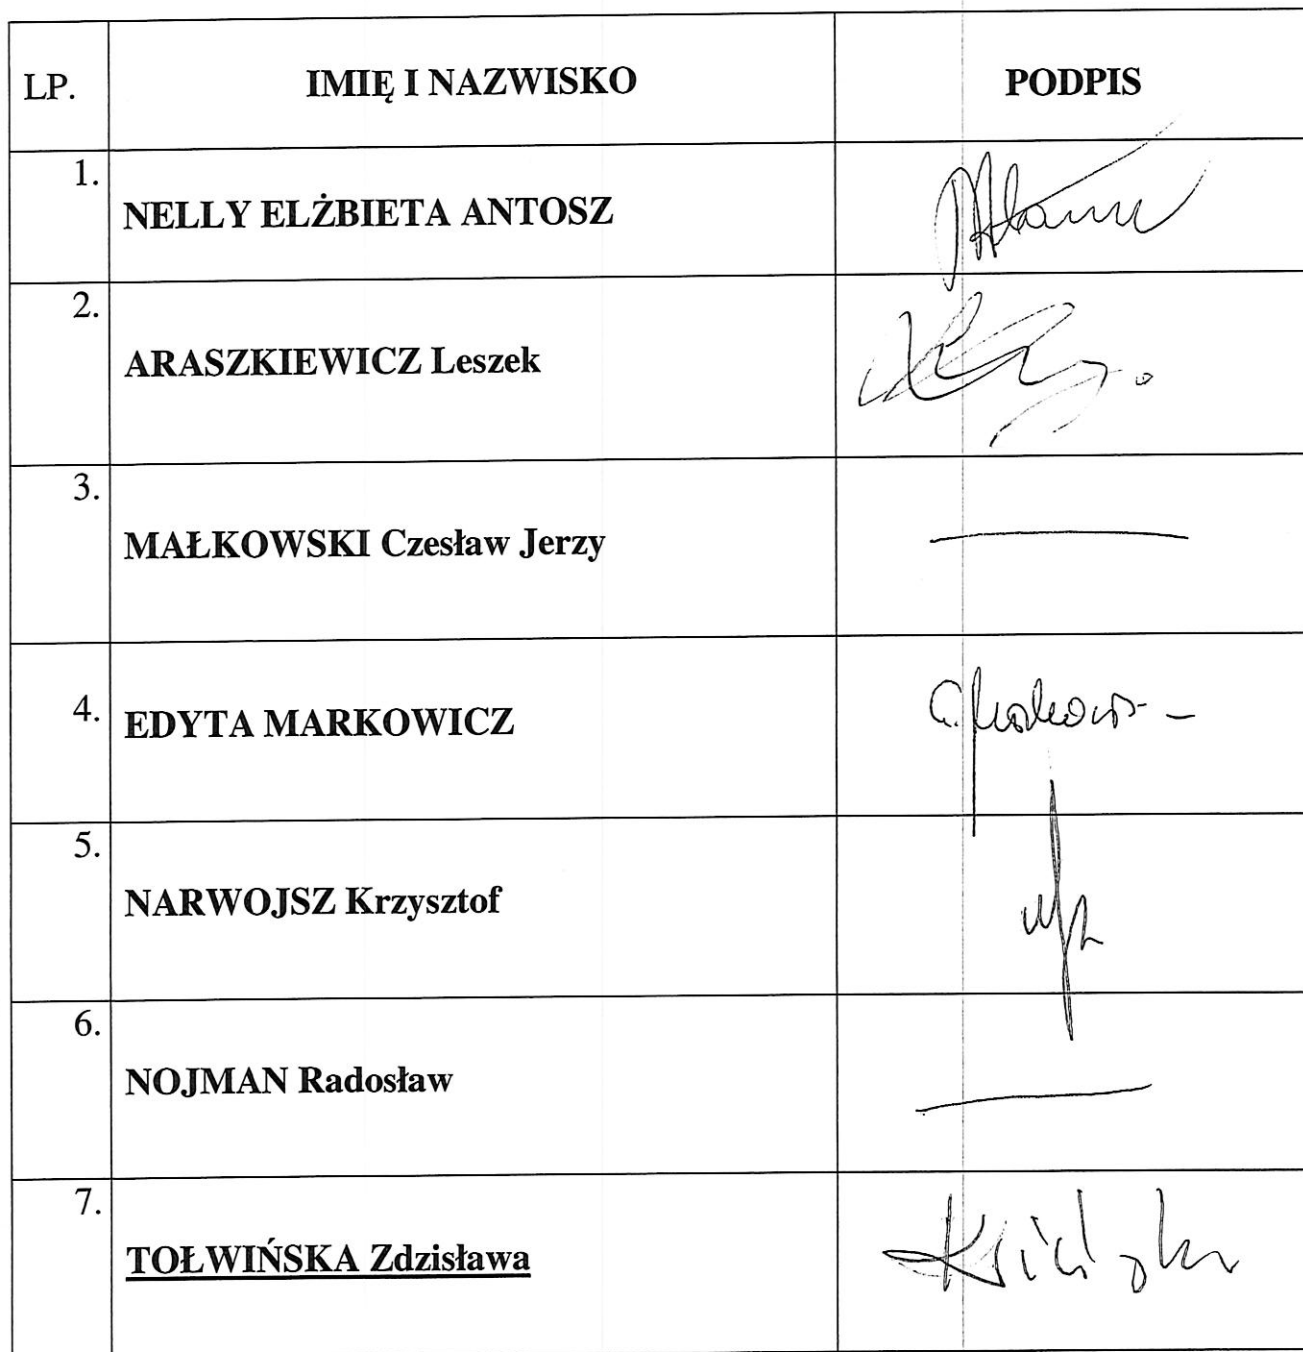 LP. IMIĘ I NAZWISKO PODPIS
1.
NELLY ELŻBIETA ANTOSZ
2.
ARASZKIEWICZ Leszek
3.
MAŁKOWSKI Czesław Jerzy
4. EDYTA MARKOWICZ
5.
NARWOJSZ Krzysztof
6.
NOJMAN Radosław
7.
TOŁWIŃSKA Zdzisława